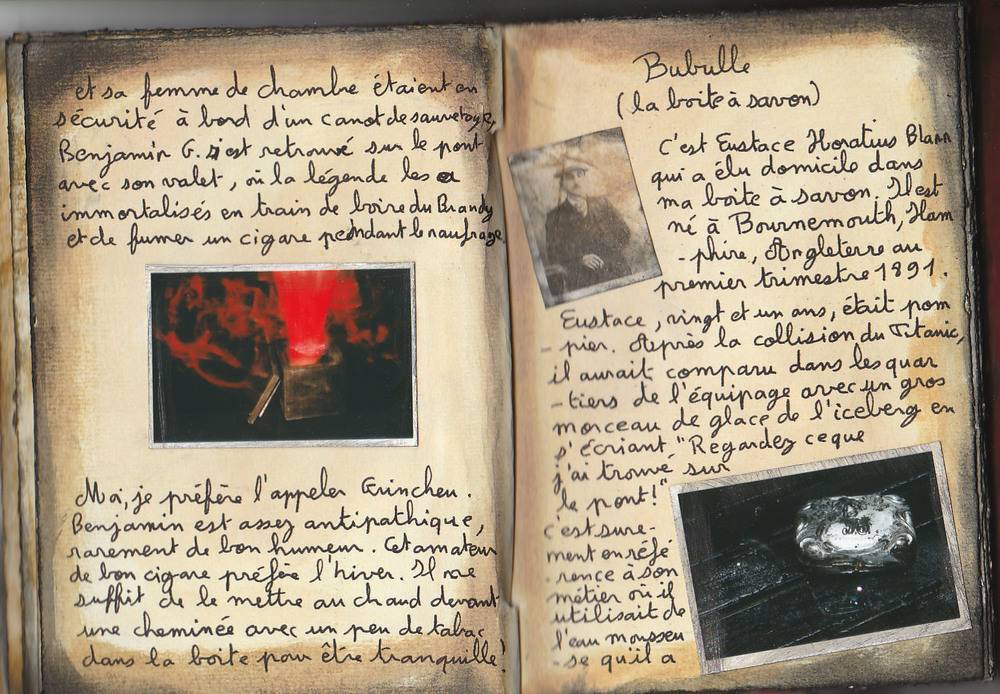 et sa femme de chambre étaient en
sécurité à bord d'un canot de sauvetage,
Benjamin G. s'est retrouvé sur le pont
avec son valet, où la légende les a
immortalisés en train de boire du Brandy
et de fumer un cigare pendant le naufrage
Moi, je préfère l'appeler Grincheu.
Benjamin est assez antipathique,
rarement de bon humeur. Cet amateur
de bon cigare préfère l'hiver. Il me
suffit de le mettre au chaud devant
une cheminée avec un peu de tabac
dans la boite pour être tranquille!
Bubulle
(la boite à savon)
C'est Eustace Horatius Blann
qui a élu domicile dans
ma boite à savon. Il est
né à Bournemouth, Ham
-phire, Angleterre au
premier trimestre 1891.
Eustace, vingt et un ans, était pom
-pier. Après la collision du Titanic,
il aurait comparu dans les quar
-tiers de l'équipage avec un gros
morceau de glace de l'iceberg en
s'écriant "Regardez ce que
j'ai trouvé sur
le pont!"
c'est sure-
ment en réfé
-rence à son
métier où il
utilisait de
l'eau mousseu
-se qu'il a